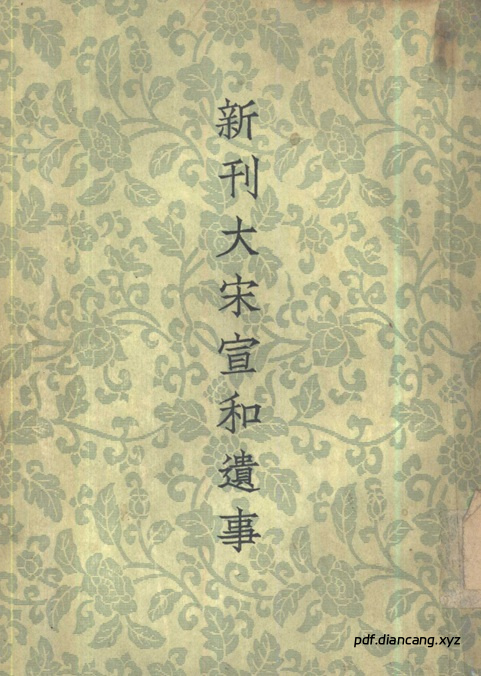 新刊大宋宣和遺事
pdf.diancang.xyz